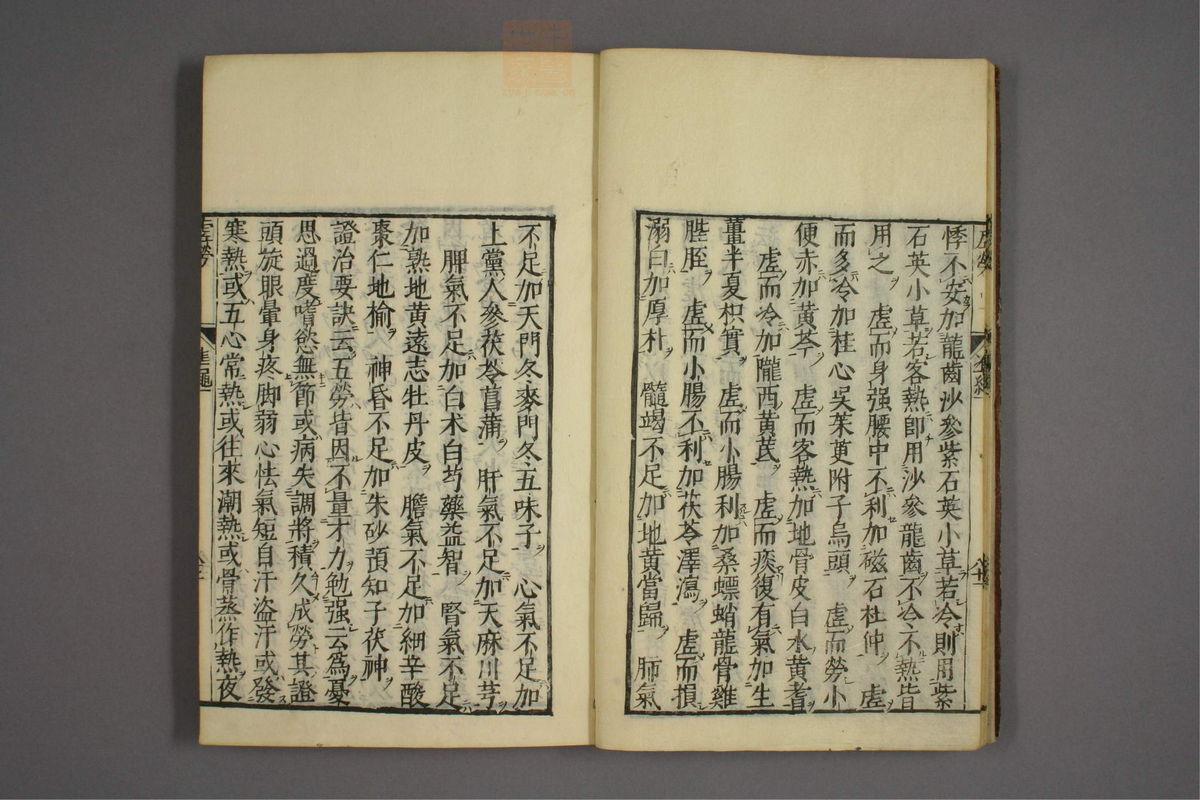 悸不安加龍齒沙參紫石英小草若冷則用紫
石英小草若客熱卽用沙參龍齒不冷不熱皆
用之 虛而身强腰中不利加磁石杜仲 虛
而多冷加桂心吳茱萸附子烏頭 虛而勞小
便赤加黃芩 虛而客熱加地骨皮白水黃耆
虛而冷加隴西黃芪 虛而痰復有氣加生
薑半夏枳實 虛而小腸利加桑螵蛸龍骨雞
膍胵 虛而小腸不利加茯苓澤瀉 虛而損
溺白加厚朴 髓竭不足加地黃當歸 肺氣
不足加天門冬麥門冬五味子 心氣不足加
上黨人參茯苓菖蒲 肝氣不足加天麻川芎
脾氣不足加白朮白芍藥益智 腎氣不足
加熟地黃遠志牡丹皮 膽氣不足加細辛酸
棗仁地榆 神昏不足加朱砂預知子茯神
證治要訣云五勞皆因不量才力勉强云爲憂
思過度嗜慾無節或病失調將積久成勞其證
頭旋眼暈身疼脚弱心怯氣短自汗盜汗或發
寒熱或五心常熱或往來潮熱或骨蒸作熱夜
虛勞
準繩